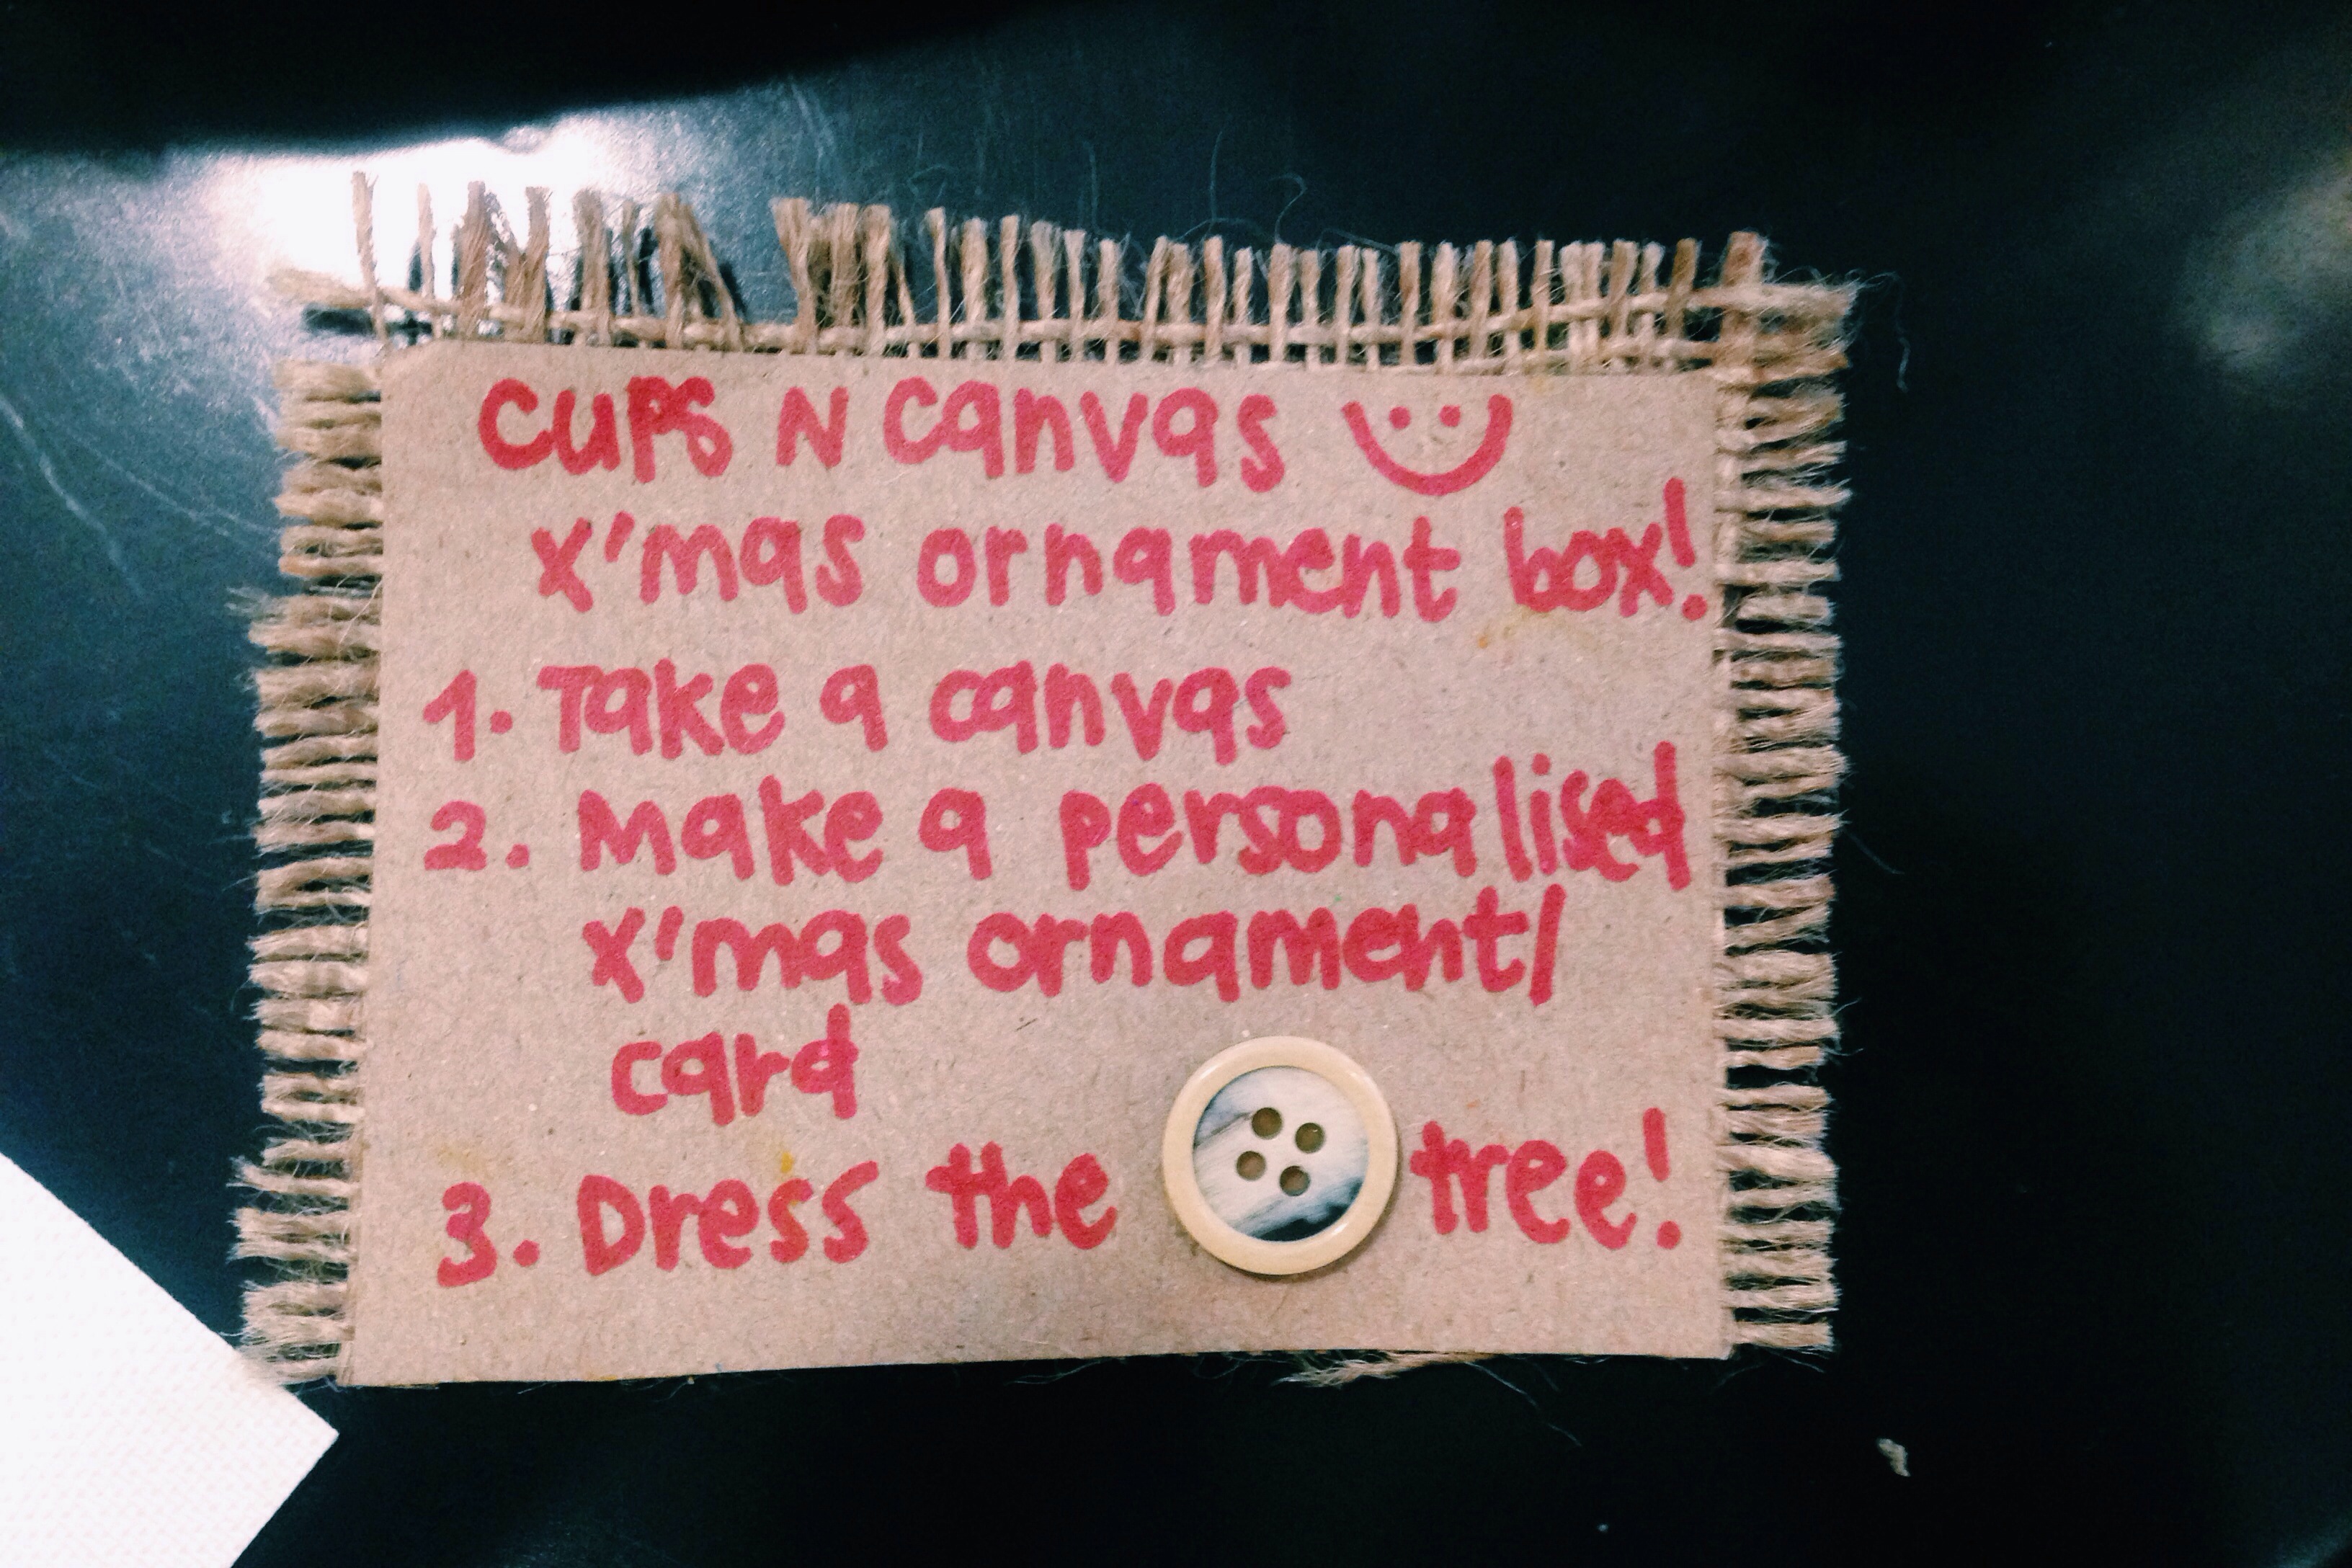 CUPS N Canvas
X'mas ornament box!
1. Take a canvas
2. Make a personalised
X'mas ornament/
card
3. Dress the tree!